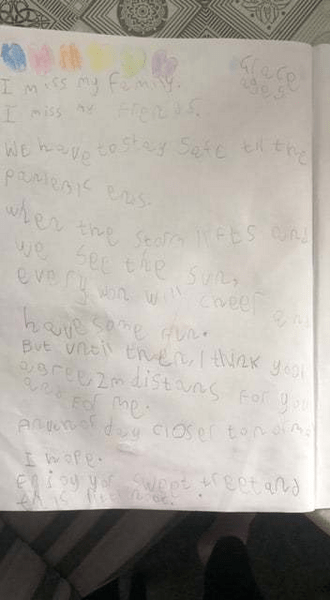 Grace
age 5
I miss my family.
I miss my friends.
We have to stay safe til the
pandemic ens.
when the storm lifts and
we see the sun,
every won will cheer an
have some fun.
But until then, I think you
agree, 2m distans for you
and for me.
Anunar day closer to norma
I hope.
enjoy yor swept treet and